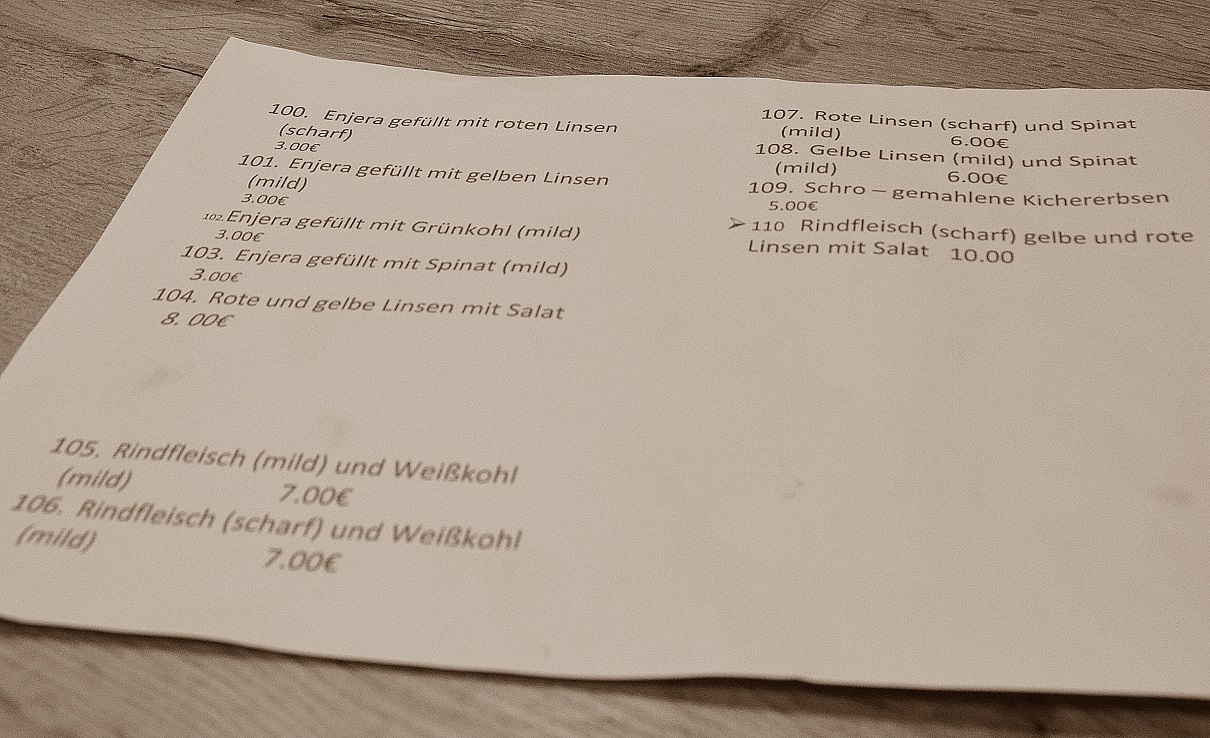 100. Enjera gefüllt mit roten Linsen
(scharf)
3.00€
101. Enjera gefüllt mit gelben Linsen
(mild)
3.00€
102. Enjera gefüllt mit Grünkohl (mild)
3.00€
103. Enjera gefüllt mit Spinat (mild)
3.00€
104. Rote und gelbe Linsen mit Salat
8. 00€
105. Rindfleisch (mild) und Weißkohl
(mild) 7.00€
106. Rindfleisch (scharf) und Weißkohl
(mild) 7.00€
107. Rote Linsen (scharf) und Spinat
(mild) 6.00€
108. Gelbe Linsen (mild) und Spinat
(mild) 6.00€
109. Schro – gemahlene Kichererbsen
5.00€
➢ 110 Rindfleisch (scharf) gelbe und rote
Linsen mit Salat 10.00